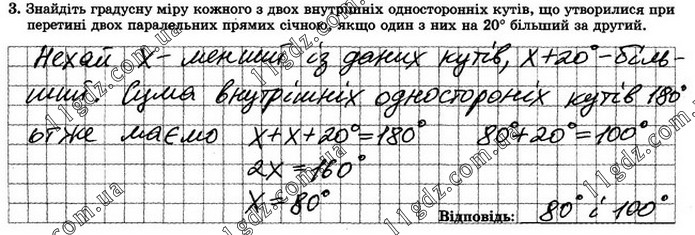 3. Знайдіть градусну міру кожного з двох внутрішніх односторонніх кутів, що утворилися при
перетині двох паралельних прямих січною, якщо один з них на 20° більший за другий.
Нехай X - менший із даних кутів, X+20° - біль-
ший. Сума внутрішніх одностороніх кутів 180°
отже маємо X+X+20°=180° 80°+20°=100°
2X=160°
X=80°
Відповідь: 80° і 100°
11gdz.com.ua